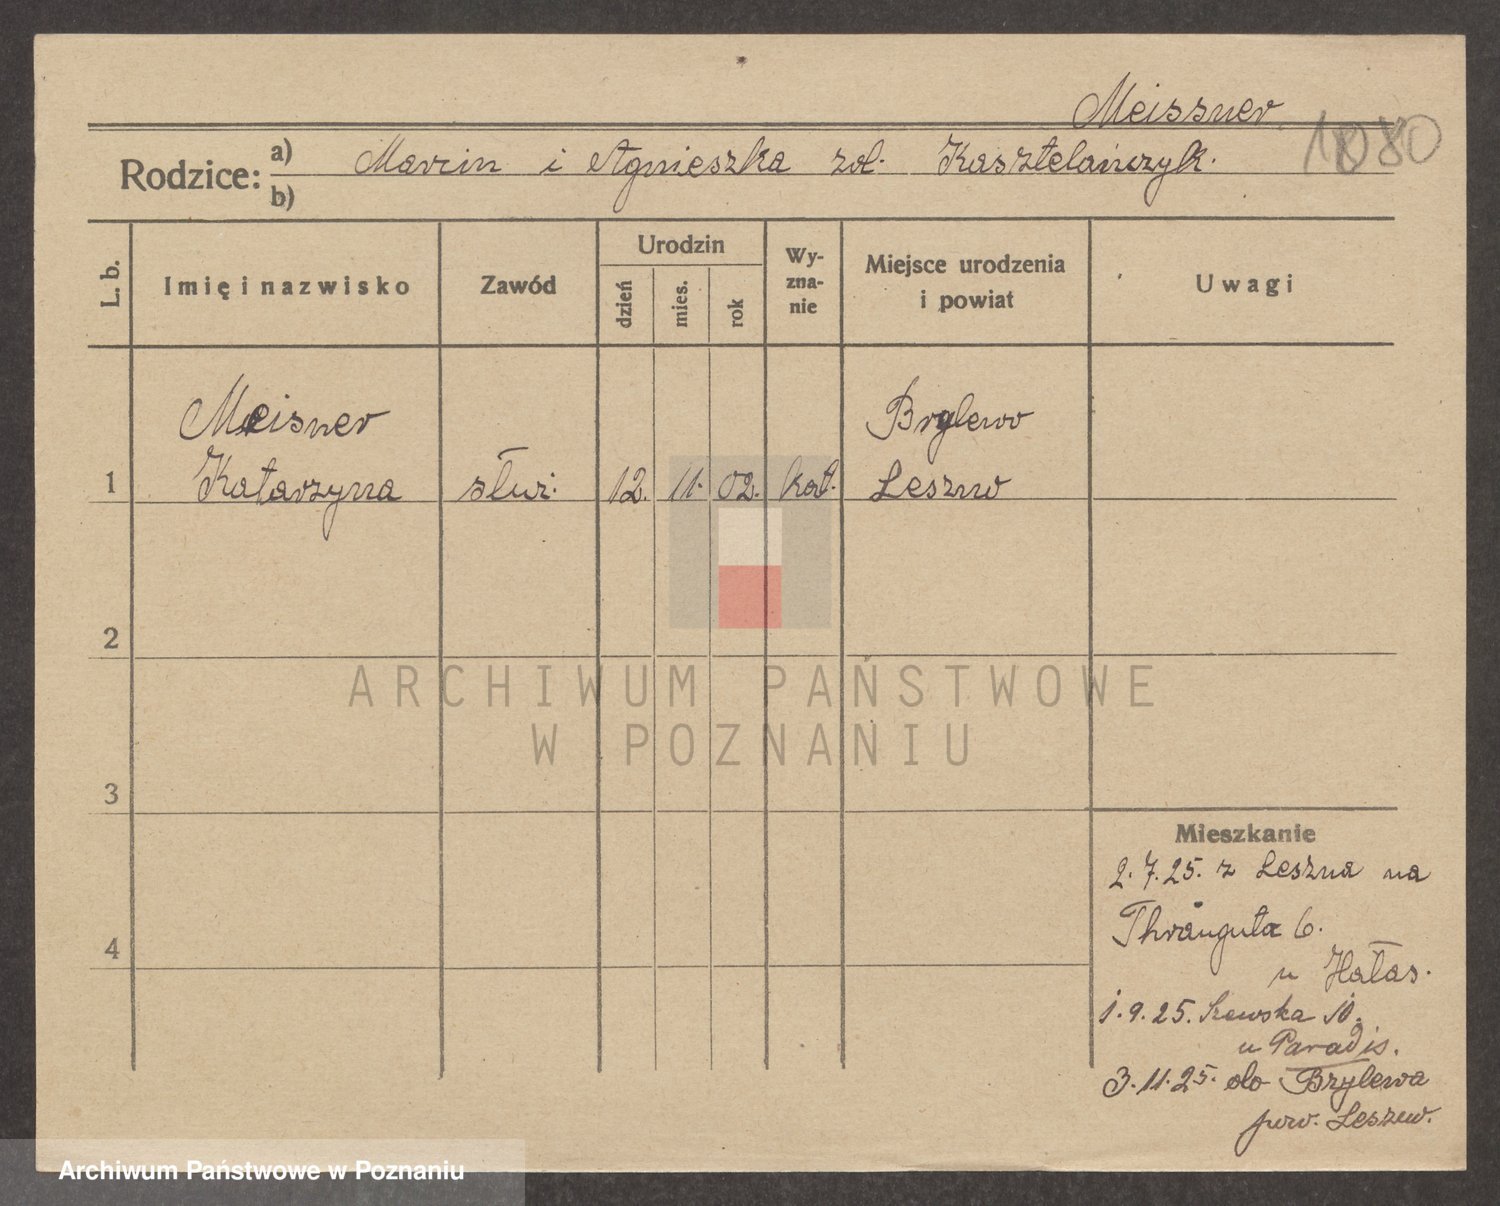 Meissner
1080
Rodzice: a) Marcin i Agnieszka Kasztelańczyk.
b)
L. b.
Imię i nazwisko
Zawód
Urodzin
dzień
mies.
rok
Wy-
zna-
nie
Miejsce urodzenia
i powiat
Uwagi
Meisner
Brylewo
1 Katarzyna służ. 12. 11. 02. kat. Leszno
2
ARCHIWUM PAŃSTWOWE
W POZNANIU
3
Mieszkanie
2.7.25. z Leszna na
6.
4
u Hałas.
1.9.25. Szewska 10.
u Paradis.
3.11.25. do Brylewa
pow. Leszno.
Archiwum Państwowe w Poznaniu